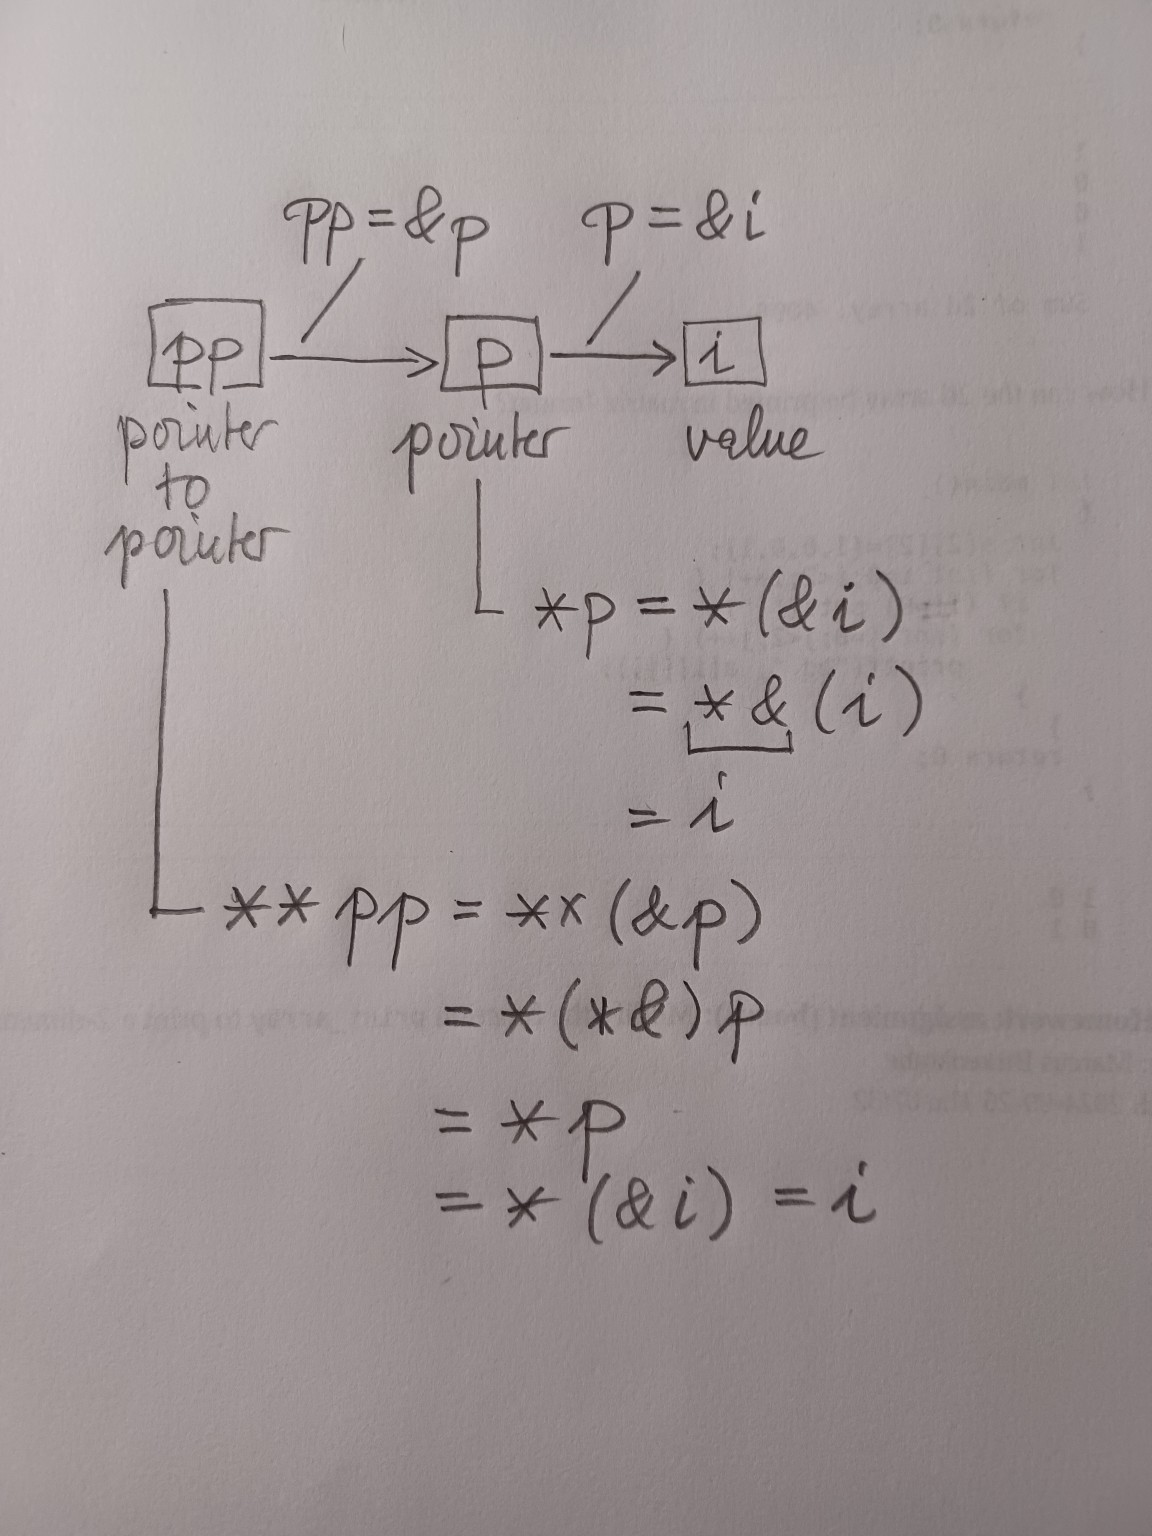 pp = &p p = &i
pp p i
pointer to pointer pointer value
*p = *(&i)
= *&(i)
= i
**pp = **(&p)
= *(*&)p
= *p
= *(&i) = i